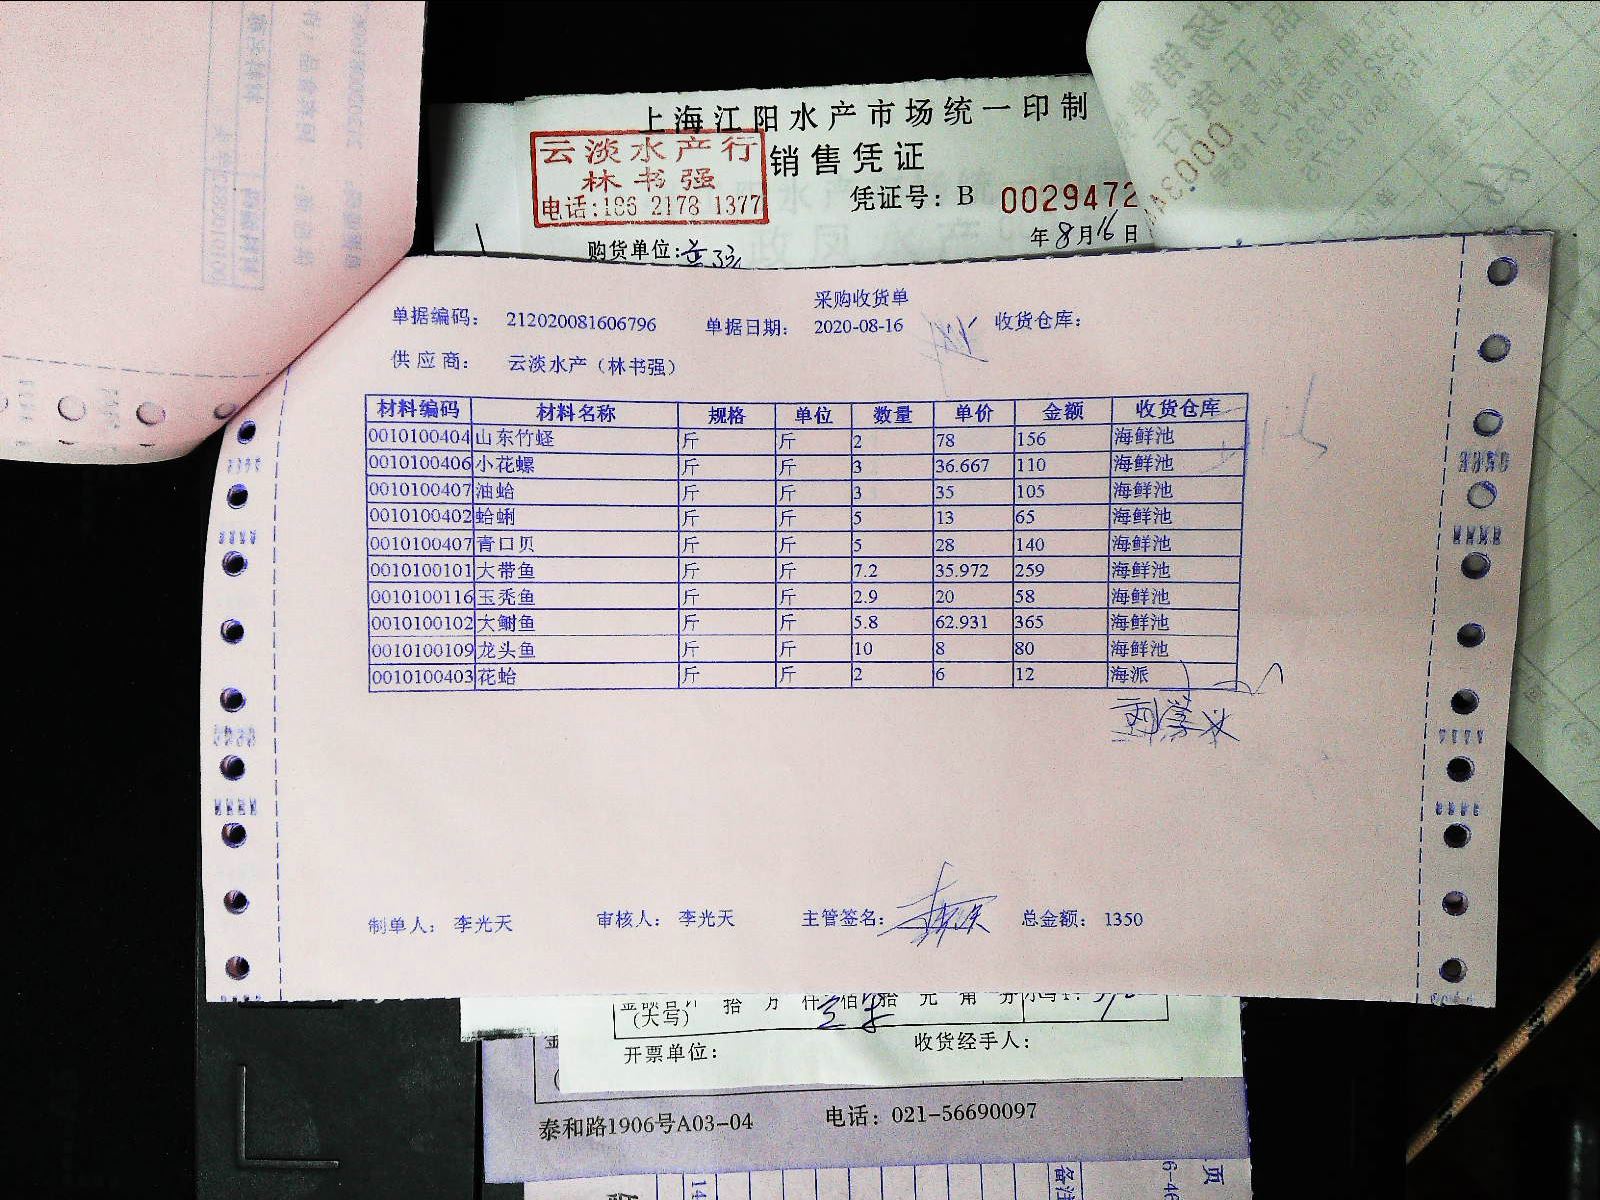 上海江阳水产市场统一印制
云淡水产行
林书强
电话:186 2178 1377
销售凭证
凭证号: B 0029472
年8月16日
购货单位:
采购收货单
单据编码: 212020081606796 单据日期: 2020-08-16 收货仓库:
供应商: 云淡水产（林书强）
材料编码 材料名称 规格 单位 数量 单价 金额 收货仓库
0010100404 山东竹蛏 斤 斤 2 78 156 海鲜池
0010100406 小花螺 斤 斤 3 36.667 110 海鲜池
0010100407 油蛤 斤 斤 3 35 105 海鲜池
0010100402 蛤蜊 斤 斤 5 13 65 海鲜池
0010100407 青口贝 斤 斤 5 28 140 海鲜池
0010100101 大带鱼 斤 斤 7.2 35.972 259 海鲜池
0010100116 玉秃鱼 斤 斤 2.9 20 58 海鲜池
0010100102 大鲥鱼 斤 斤 5.8 62.931 365 海鲜池
0010100109 龙头鱼 斤 斤 10 8 80 海鲜池
0010100403 花蛤 斤 斤 2 6 12 海派
制单人: 李光天 审核人: 李光天 主管签名: 总金额: 1350
拾 万 仟 佰 拾 元 角 分
(大写)
开票单位: 收货经手人:
泰和路1906号A03-04 电话: 021-56690097